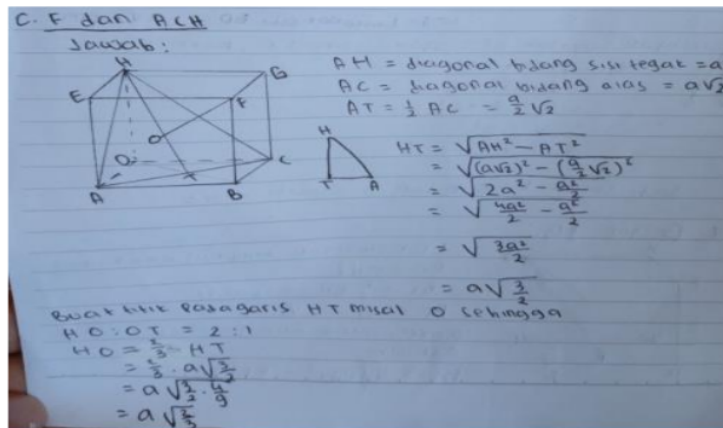 C. F dan ACH
Jawab:
H
G
E
F
O
D
C
A
T
B
AH = diagonal bidang sisi tegak = a
AC = diagonal bidang alas = a√2
AT = ½ AC = a/2 √2
H
T A
HT = √AH² - AT²
= √(a√2)² - (a/2 √2)²
= √2a² - a²/2
= √4a²/2 - a²/2
= √3a²/2
= a√3/2
Buat titik pada garis HT misal O sehingga
HO : OT = 2 : 1
HO = 2/3 · HT
= 2/3 · a√3/2
= a√3/2 · 4/9
= a√2/3